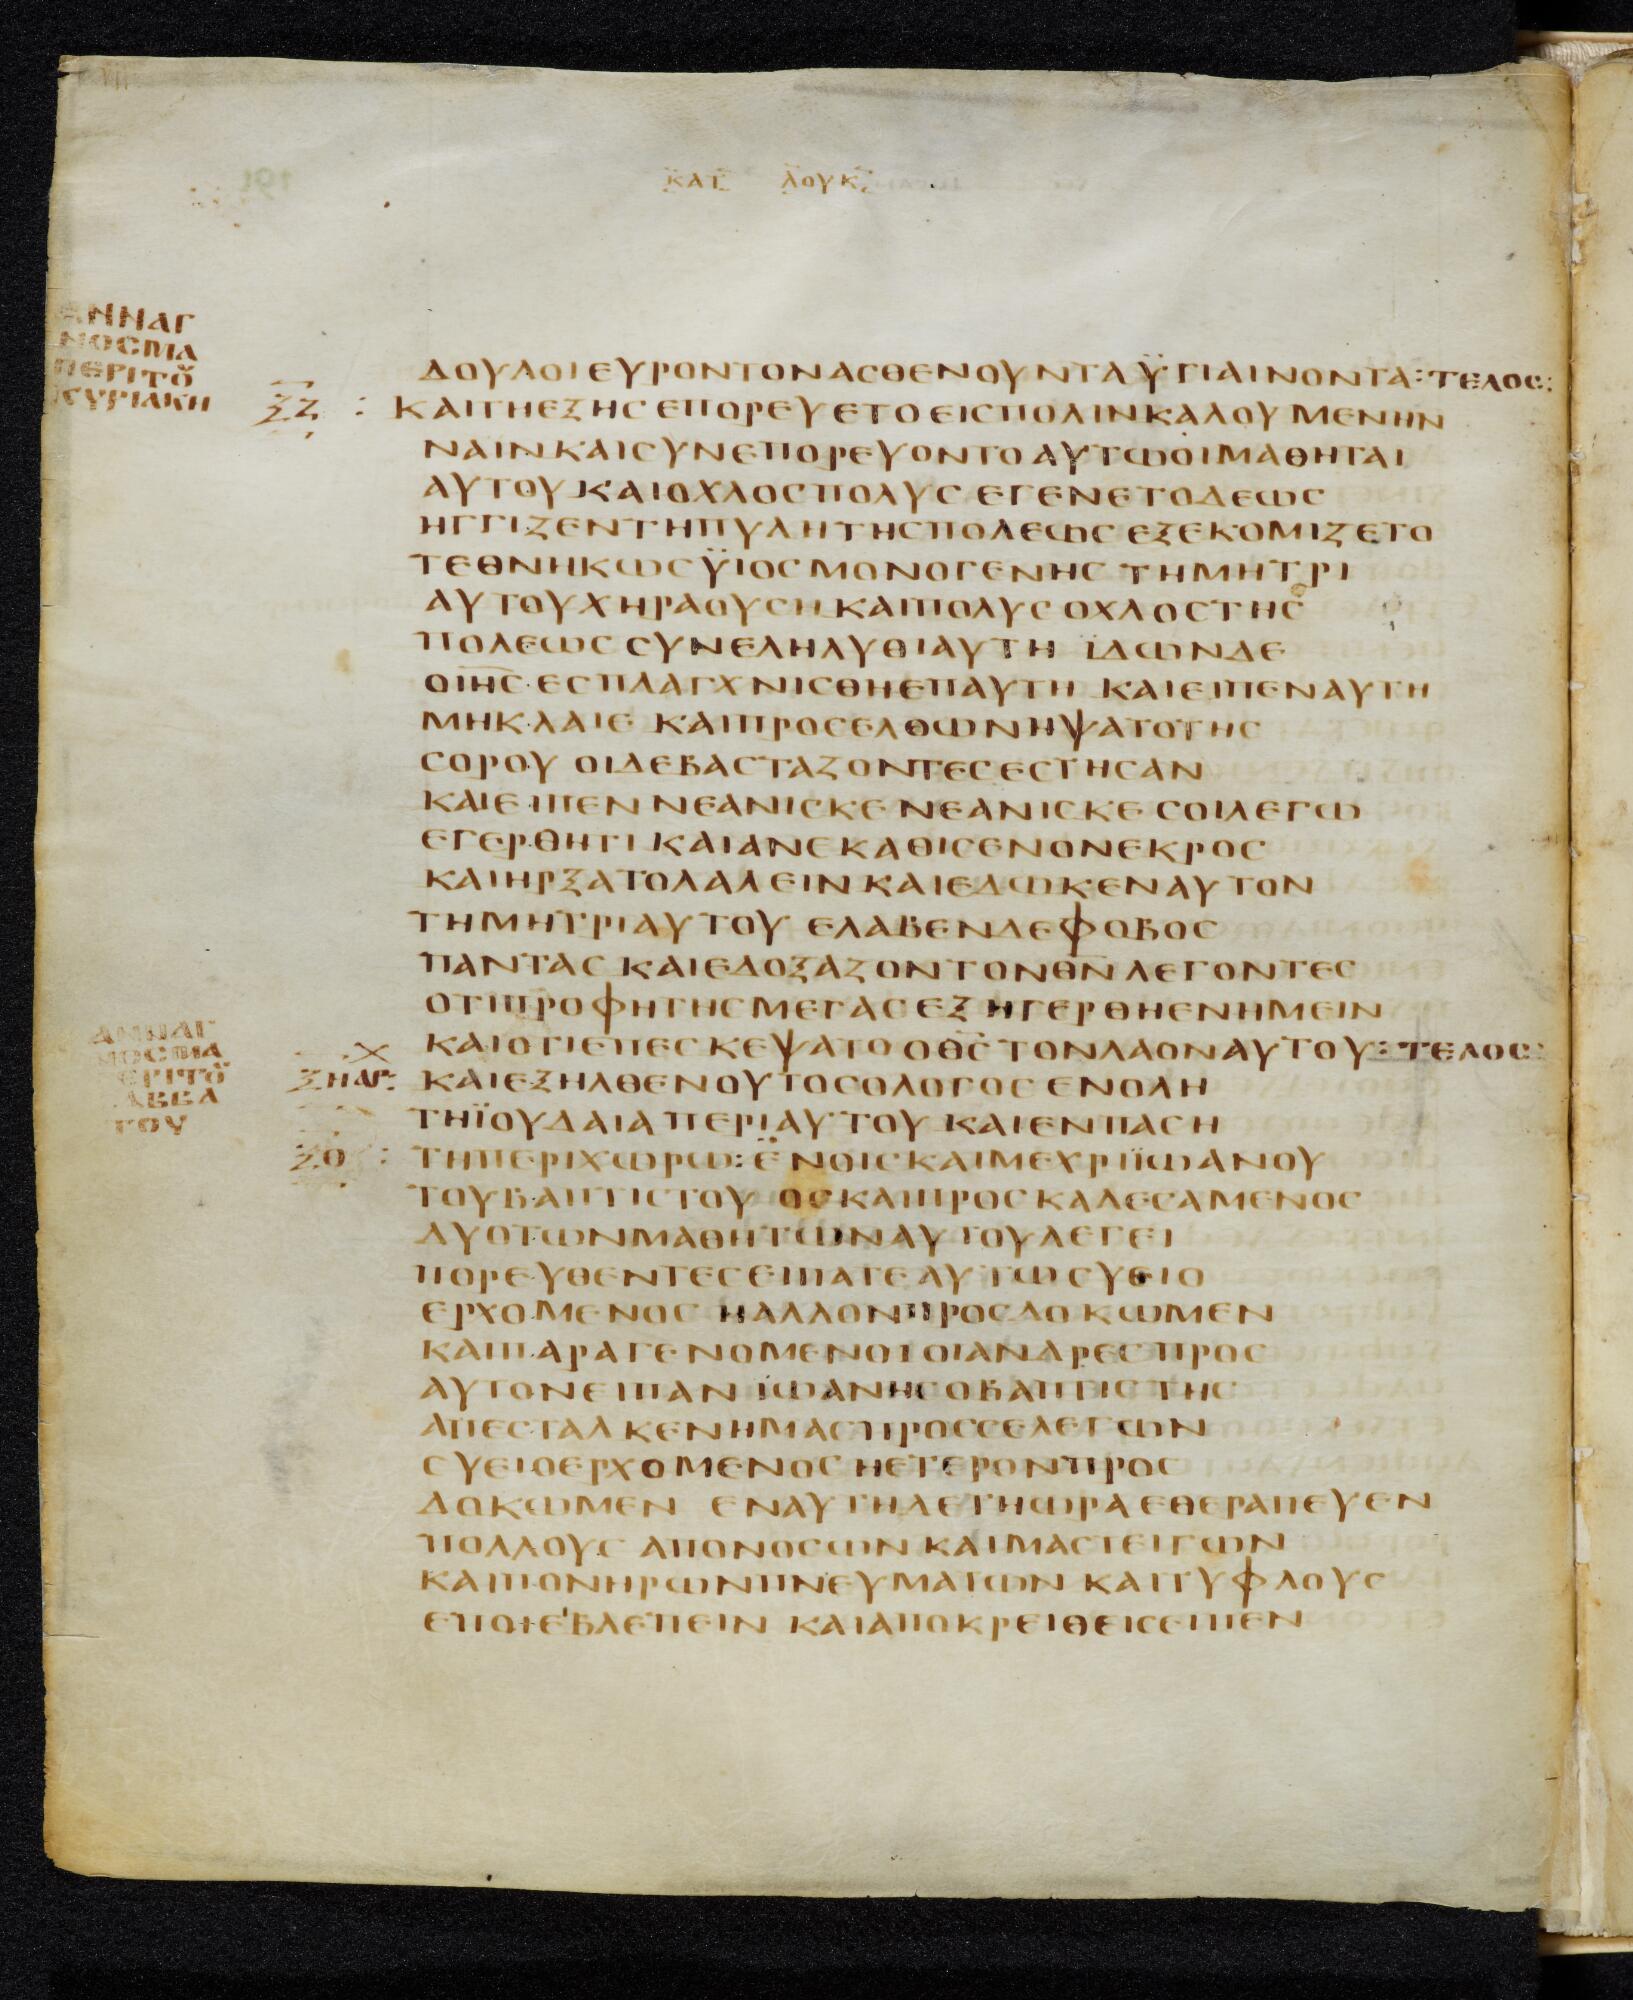 ΚΑΤ ΛΟΥΚ
ΑΝΝΑΓ
ΝΟСΜΑ
ΠΕΡΙΤΟΥ
ΚΥΡΙΑΚΗ
ΔΟΥΛΟΙΕΥΡΟΝΤΟΝΑСΘΕΝΟΥΝΤΑΫΓΙΑΙΝΟΝΤΑ:ΤΕΛΟС:
ΞΖ : ΚΑΙΤΗΕΞΗСΕΠΟΡΕΥΕΤΟΕΙСΠΟΛΙΝΚΑΛΟΥΜΕΝΗΝ
ΝΑΙΝΚΑΙСΥΝΕΠΟΡΕΥΟΝΤΟΑΥΤΩΟΙΜΑΘΗΤΑΙ
ΑΥΤΟΥΚΑΙΟΧΛΟСΠΟΛΥС ΕΓΕΝΕΤΟΔΕΩС
ΗΓΓΙΖΕΝΤΗΠΥΛΗΤΗСΠΟΛΕΩСΕΞΕΚΟΜΙΖΕΤΟ
ΤΕΘΝΗΚΩСΫΙΟСΜΟΝΟΓΕΝΗС ΤΗΜΗΤΡΙ
ΑΥΤΟΥΧΗΡΑΟΥСΗ ΚΑΙΠΟΛΥСΟΧΛΟСΤΗС
ΠΟΛΕΩССΥΝΕΛΗΛΥΘΙΑΥΤΗ ΪΔΩΝΔΕ
ΟΙΗС·ΕСΠΛΑΓΧΝΙСΘΗΕΠΑΥΤΗ ΚΑΙΕΙΠΕΝΑΥΤΗ
ΜΗΚΛΑΙΕ ΚΑΙΠΡΟСΕΛΘΩΝΗΨΑΤΟΤΗС
СΟΡΟΥ ΟΙΔΕΒΑСΤΑΖΟΝΤΕСΕСΤΗСΑΝ
ΚΑΙΕΙΠΕΝ ΝΕΑΝΙСΚΕ ΝΕΑΝΙСΚΕ СΟΙΛΕΓΩ
ΕΓΕΡΘΗΤΙ ΚΑΙΑΝΕΚΑΘΙСΕΝΟΝΕΚΡΟС
ΚΑΙΗΡΞΑΤΟΛΑΛΕΙΝΚΑΙΕΔΩΚΕΝΑΥΤΟΝ
ΤΗΜΗΤΡΙΑΥΤΟΥ ΕΛΑΒΕΝΔΕΦΟΒΟС
ΠΑΝΤΑС ΚΑΙΕΔΟΞΑΖΟΝΤΟΝΘΝ ΛΕΓΟΝΤΕС
ΟΤΙΠΡΟΦΗΤΗСΜΕΓΑСΕΞΗΓΕΡΘΗΕΝΗΜΕΙΝ
ΚΑΙΟΤΙΕΠΕСΚΕΨΑΤΟ ΟΘС ΤΟΝΛΑΟΝΑΥΤΟΥ:ΤΕΛΟС:
ΑΝΝΑΓ
ΝΟСΜΑ
ΠΕΡΙΤΟΥ
ΑΒΒΑ
ΤΟΥ
ΞΗΑΡΧ: ΚΑΙΕΞΗΛΘΕΝΟΥΤΟСΟΛΟΓΟС ΕΝΟΛΗ
ΤΗΪΟΥΔΑΙΑΠΕΡΙΑΥΤΟΥ ΚΑΙΕΝΠΑСΗ
ΞΘ : ΤΗΠΕΡΙΧΩΡΩ:ΕΝΟΙСΚΑΙΜΕΧΡΙΪΩΑΝΟΥ
ΤΟΥΒΑΠΤΙСΤΟΥ ΟС ΚΑΙΠΡΟСΚΑΛΕСΑΜΕΝΟС
ΔΥΟΤΩΝΜΑΘΗΤΩΝΑΥΤΟΥΛΕΓΕΙ
ΠΟΡΕΥΘΕΝΤΕСΕΙΠΑΤΕΑΥΤΩСΥΕΙΟ
ΕΡΧΟΜΕΝΟС ΗΑΛΛΟΝΠΡΟСΔΟΚΩΜΕΝ
ΚΑΙΠΑΡΑΓΕΝΟΜΕΝΟΙΟΙΑΝΔΡΕСΠΡΟС
ΑΥΤΟΝΕΙΠΑΝ ΪΩΑΝΗСΟΒΑΠΤΙСΤΗС
ΑΠΕСΤΑΛΚΕΝΗΜΑСΠΡΟССΕΛΕΓΩΝ
СΥΕΙΟΕΡΧΟΜΕΝΟСΗΕΤΕΡΟΝΠΡΟС
ΔΟΚΩΜΕΝ ΕΝΑΥΤΗΔΕΤΗΩΡΑΕΘΕΡΑΠΕΥΕΝ
ΠΟΛΛΟΥС ΑΠΟΝΟСΩΝ ΚΑΙΜΑСΤΕΙΓΩΝ
ΚΑΙΠΟΝΗΡΩΝΠΝΕΥΜΑΤΩΝ ΚΑΙΤΥΦΛΟΥС
ΕΠΟΙΕΙΒΛΕΠΕΙΝ ΚΑΙΑΠΟΚΡΕΙΘΕΙСΕΙΠΕΝ